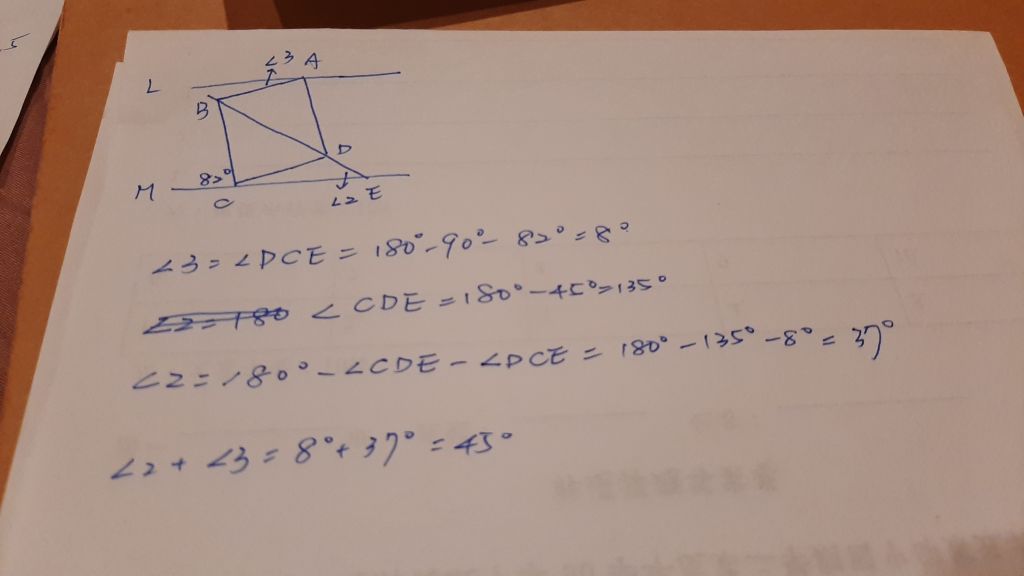 5
∠3 A
L
B
D
82°
M
C
∠2 E
∠3 = ∠DCE = 180° - 90° - 82° = 8°
∠2 = 180 ∠CDE = 180° - 45° = 135°
∠2 = 180° - ∠CDE - ∠DCE = 180° - 135° - 8° = 37°
∠2 + ∠3 = 8° + 37° = 45°